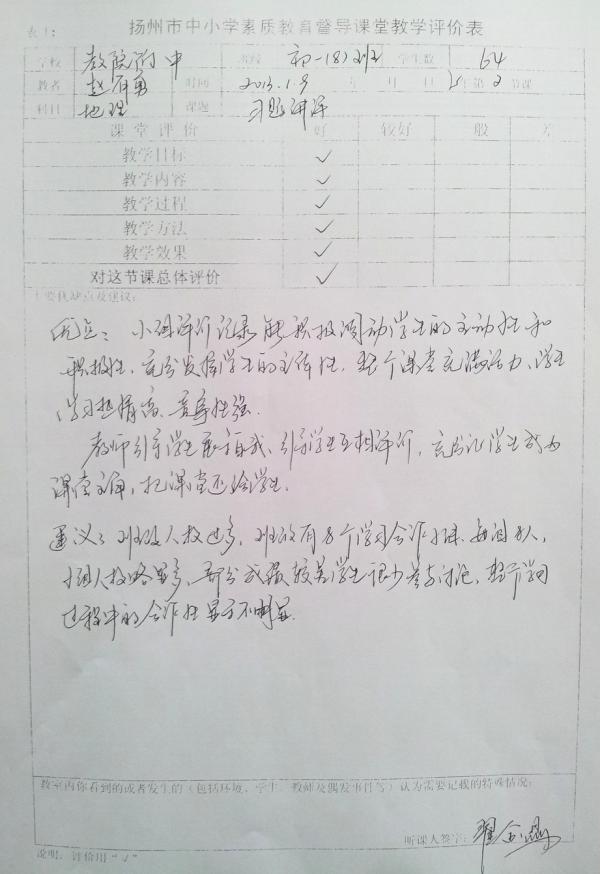 表1:
扬州市中小学素质教育督导课堂教学评价表
学校 教院附中 班级 初一(8)班 学生数 64
教者 时间 2013.1.9 年 月 日 第2节课
科目 地理 课题 习题讲评
课堂评价 好 较好 一般 差
教学目标 ✓
教学内容 ✓
教学过程 ✓
教学方法 ✓
教学效果 ✓
对这节课总体评价 ✓
主要优缺点及建议:
优点: 小组评价记录能积极调动学生的主动性和
积极性,充分发挥学生的主体性.整个课堂充满活力,学生
学习热情高、竞争性强.
教师引导学生展示自我、引导学生互相评价,充分让学生成为
课堂主角,把课堂还给学生.
建议: 班级人数过多,班级有8个学习合作小组,每组8人,
小组人数略显多,部分成绩较差学生很少参与讨论,整个学习
过程中的合作性显示不明显.
教室内你看到的或者发生的(包括环境、学生、教师及偶发事件等)认为需要记载的特殊情况:
听课人签字:
说明:评价用“√”